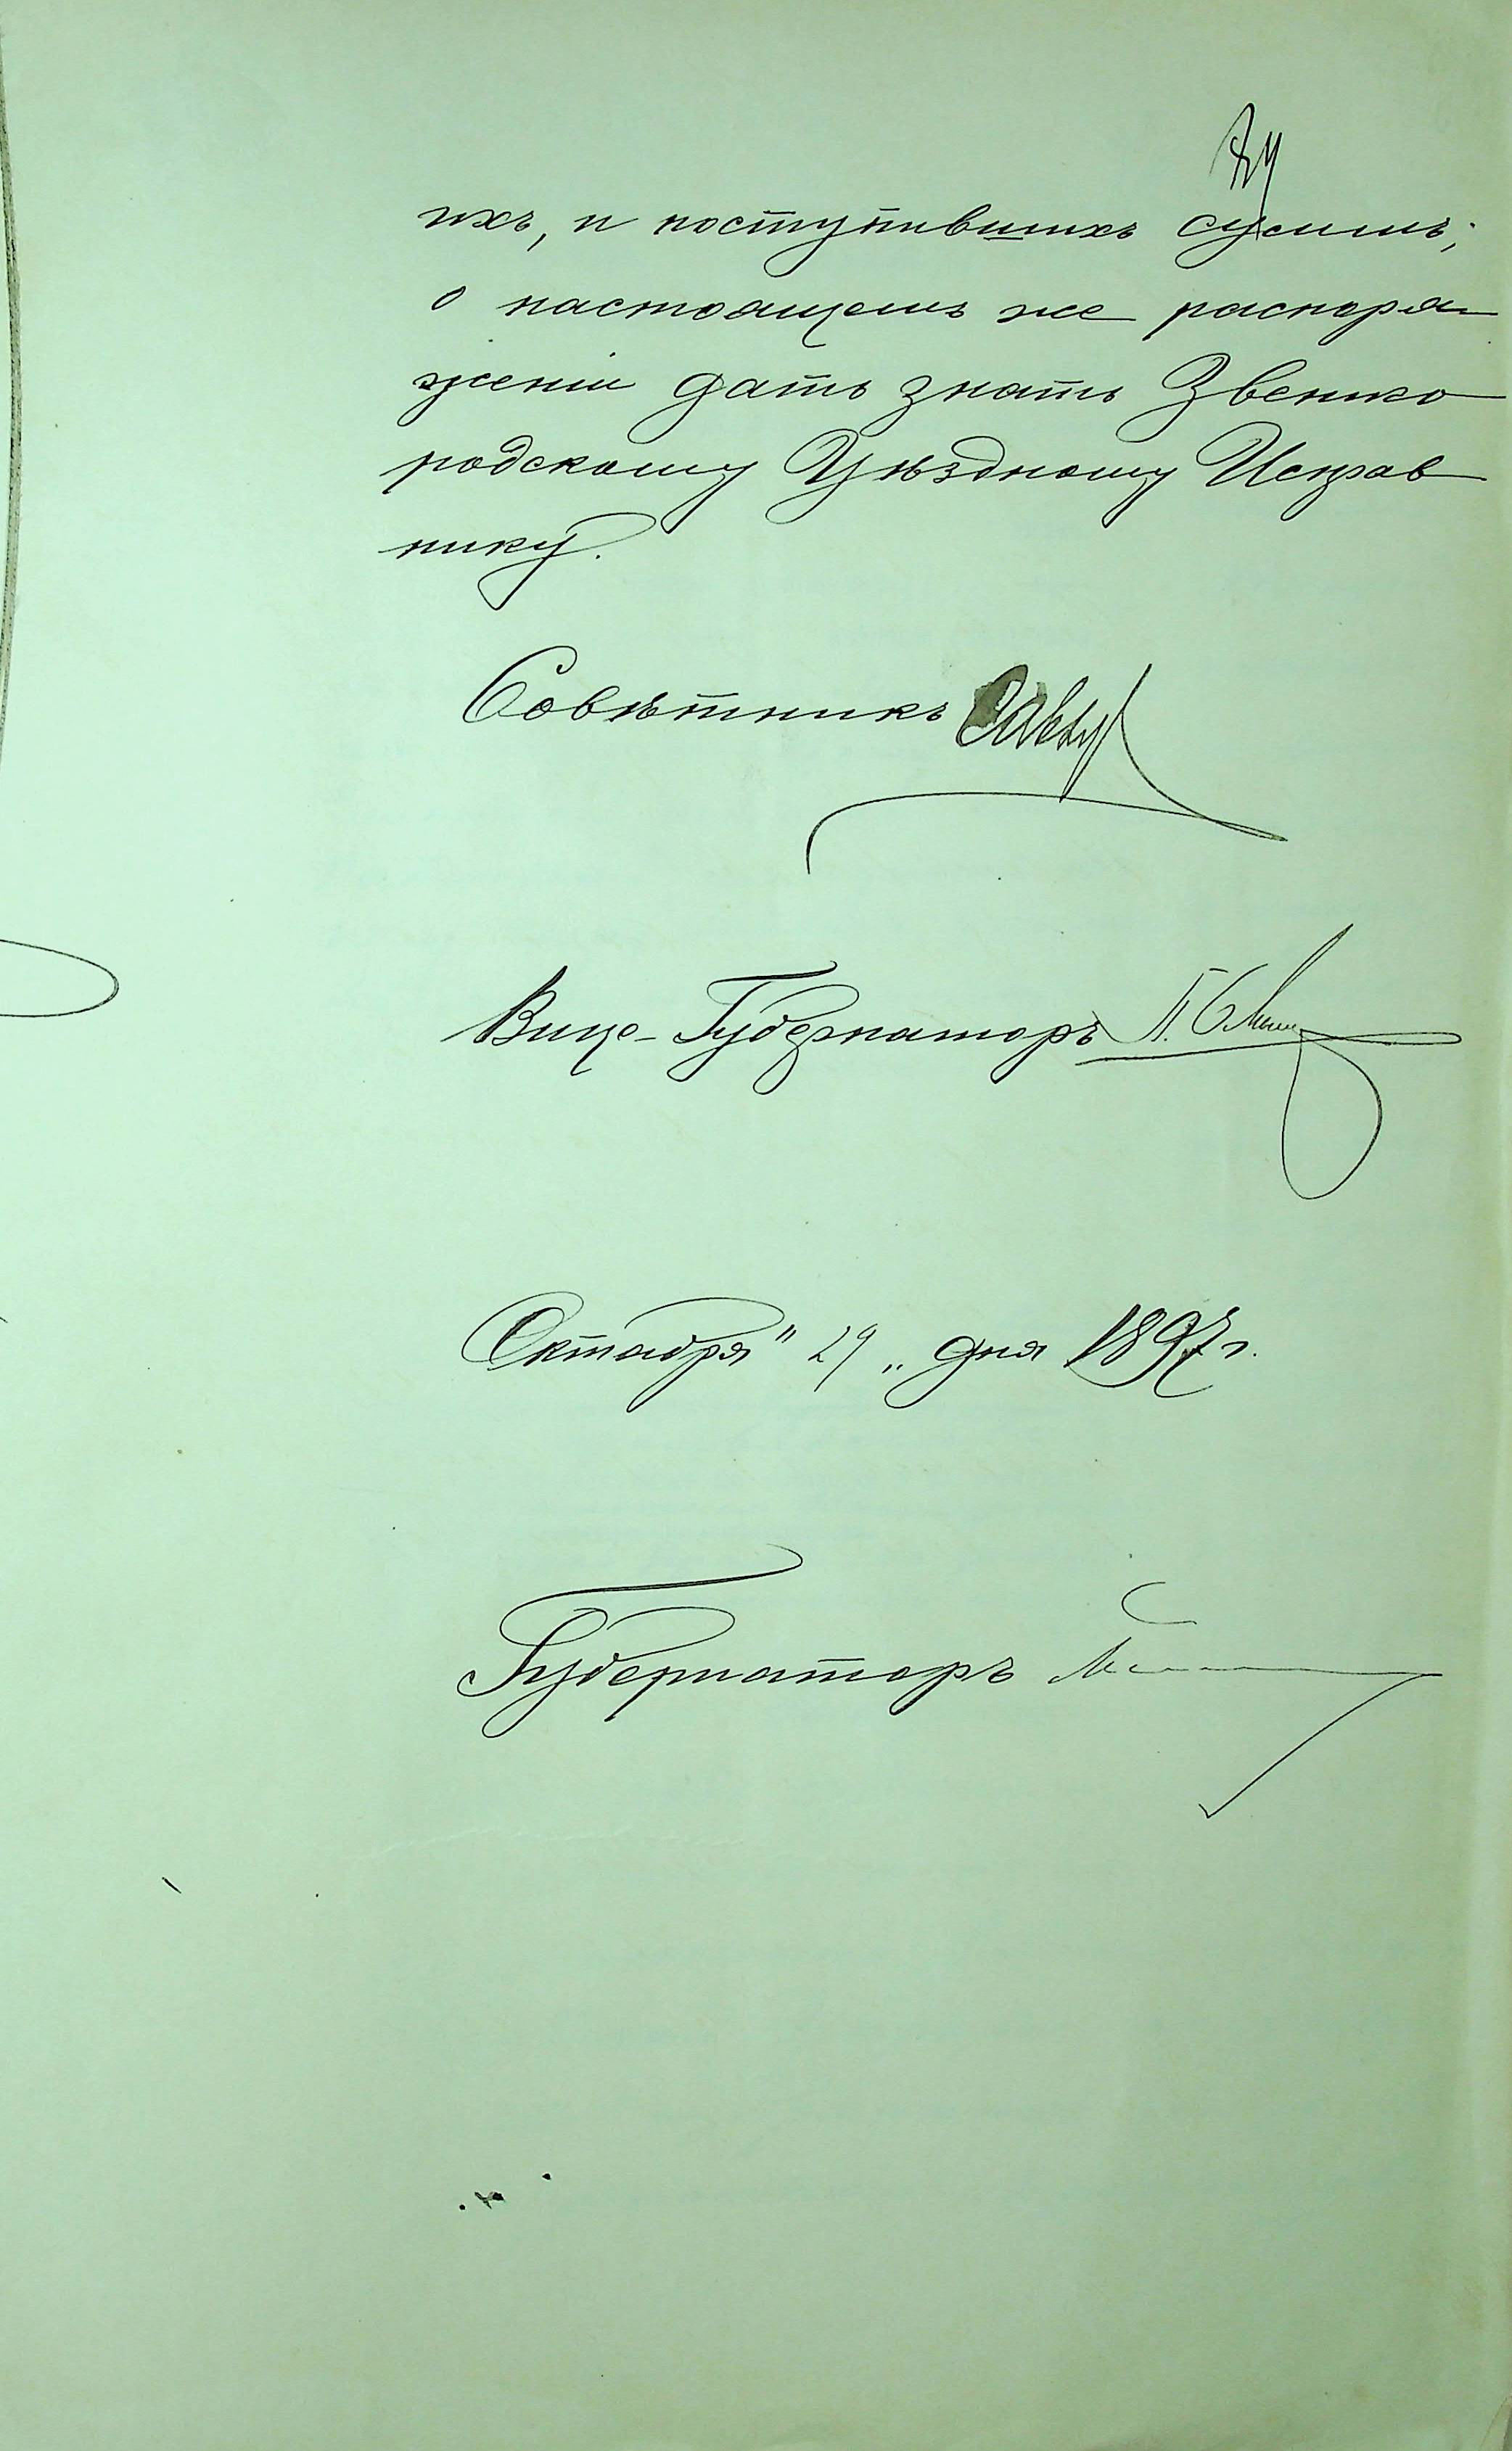 ихъ, и поступившихъ суммъ;
о настоящемъ же распоря
женіи дать знать Звенио
родскому Уѣздному Исправ
нику.
Совѣтникъ
Вице-Губернаторъ
Октября "29" дня 1897 г.
Губернаторъ